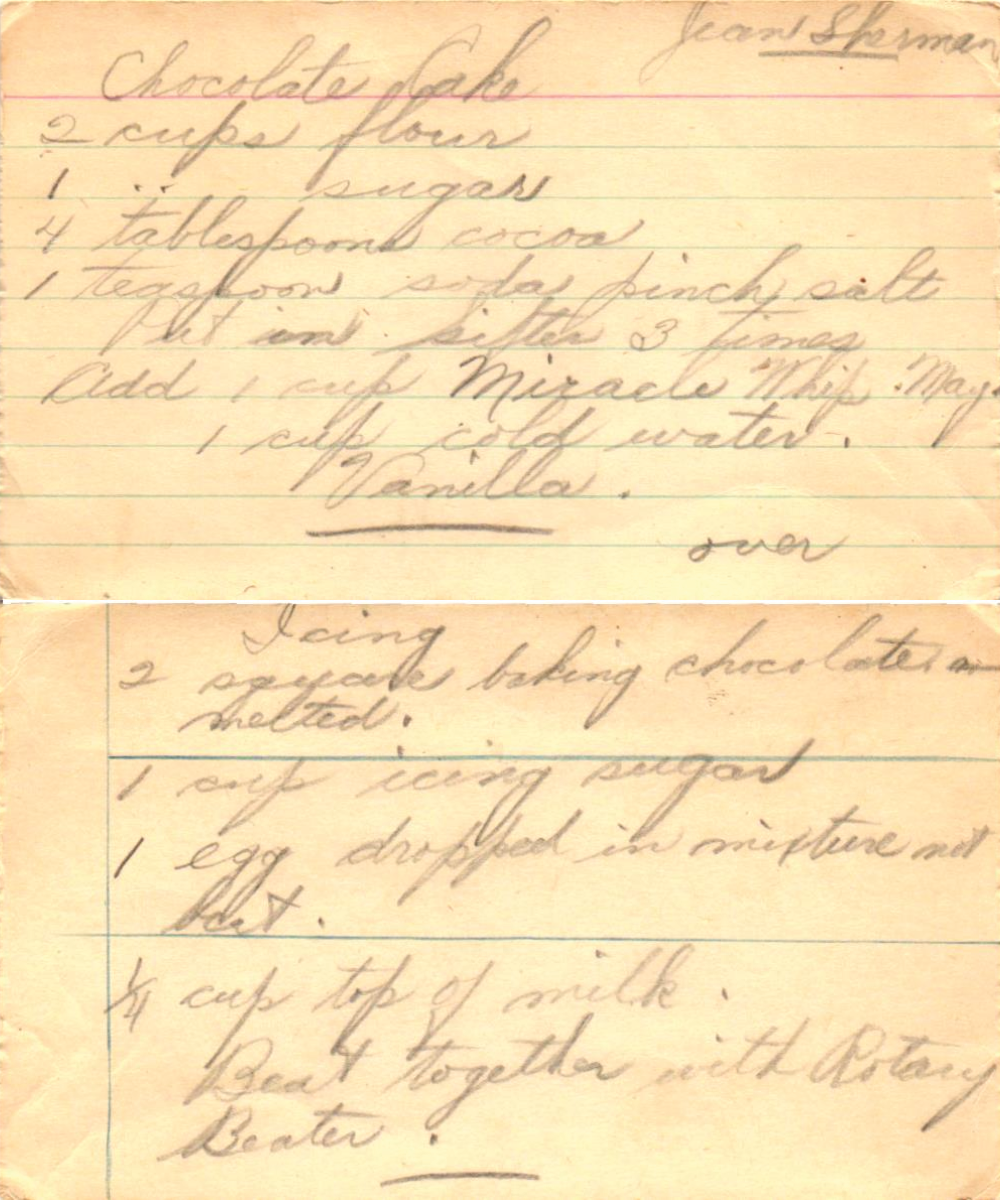 Jean Sherman
Chocolate Cake
2 cups flour
1 " sugar
4 tablespoons cocoa
1 teaspoon soda pinch salt
Put in sifter 3 times
Add 1 cup Miracle Whip May.
1 cup cold water.
Vanilla.
over
Icing
2 square baking chocolate
melted.
1 cup icing sugar
1 egg dropped in mixture not
beat.
1/4 cup top of milk.
Beat together with Rotary
Beater.